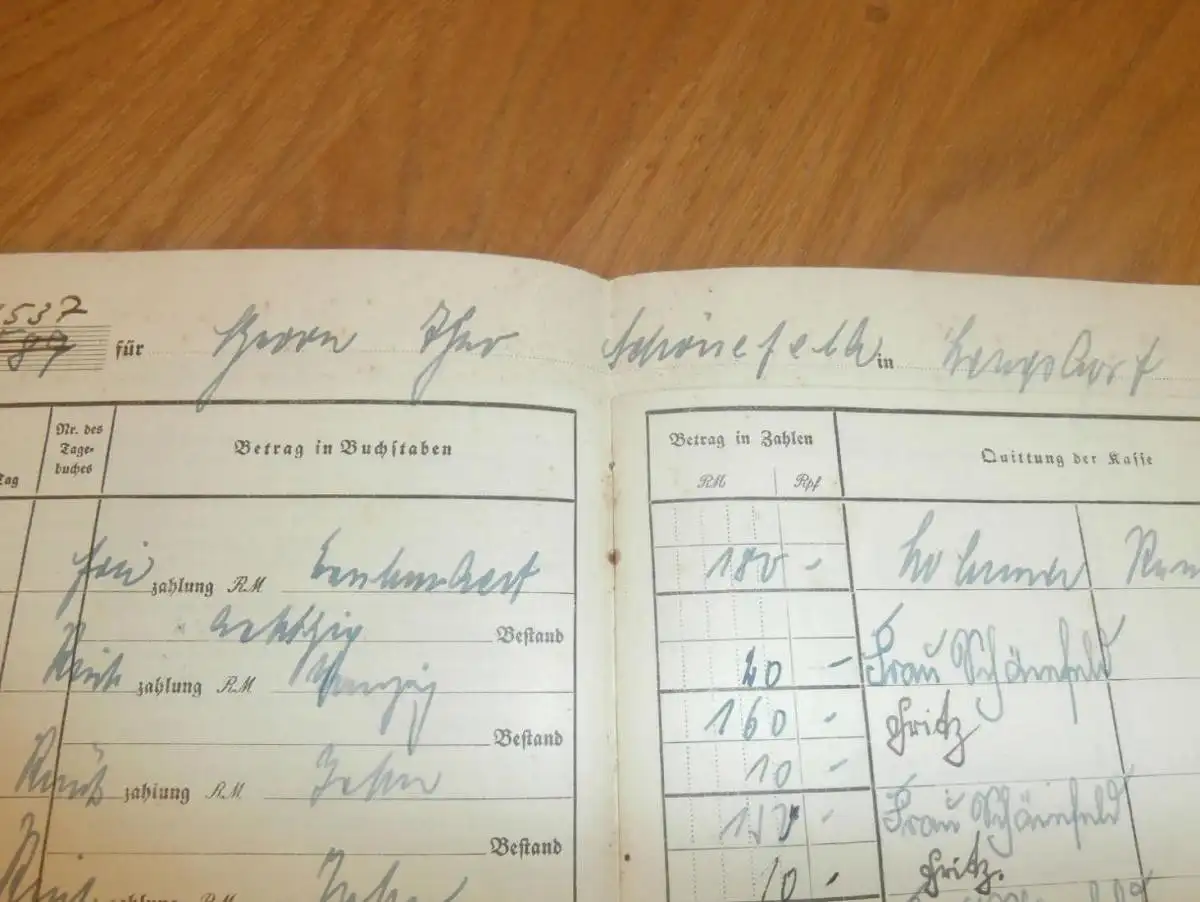 537
für Herrn Schönefeld in
Tag Nr. des Tage- buches Betrag in Buchstaben Betrag in Zahlen Quittung der Kasse
RM Rpf
zahlung RM Einhundert 180 -
achtzig Bestand
Rück zahlung RM Zwanzig 20 - Frau Schönfeld
Bestand 160 - Fritz
Rück zahlung RM Zehn 10 -
Bestand 150 - Frau Schönfeld
Rück zahlung RM Zehn 10 - Fritz.